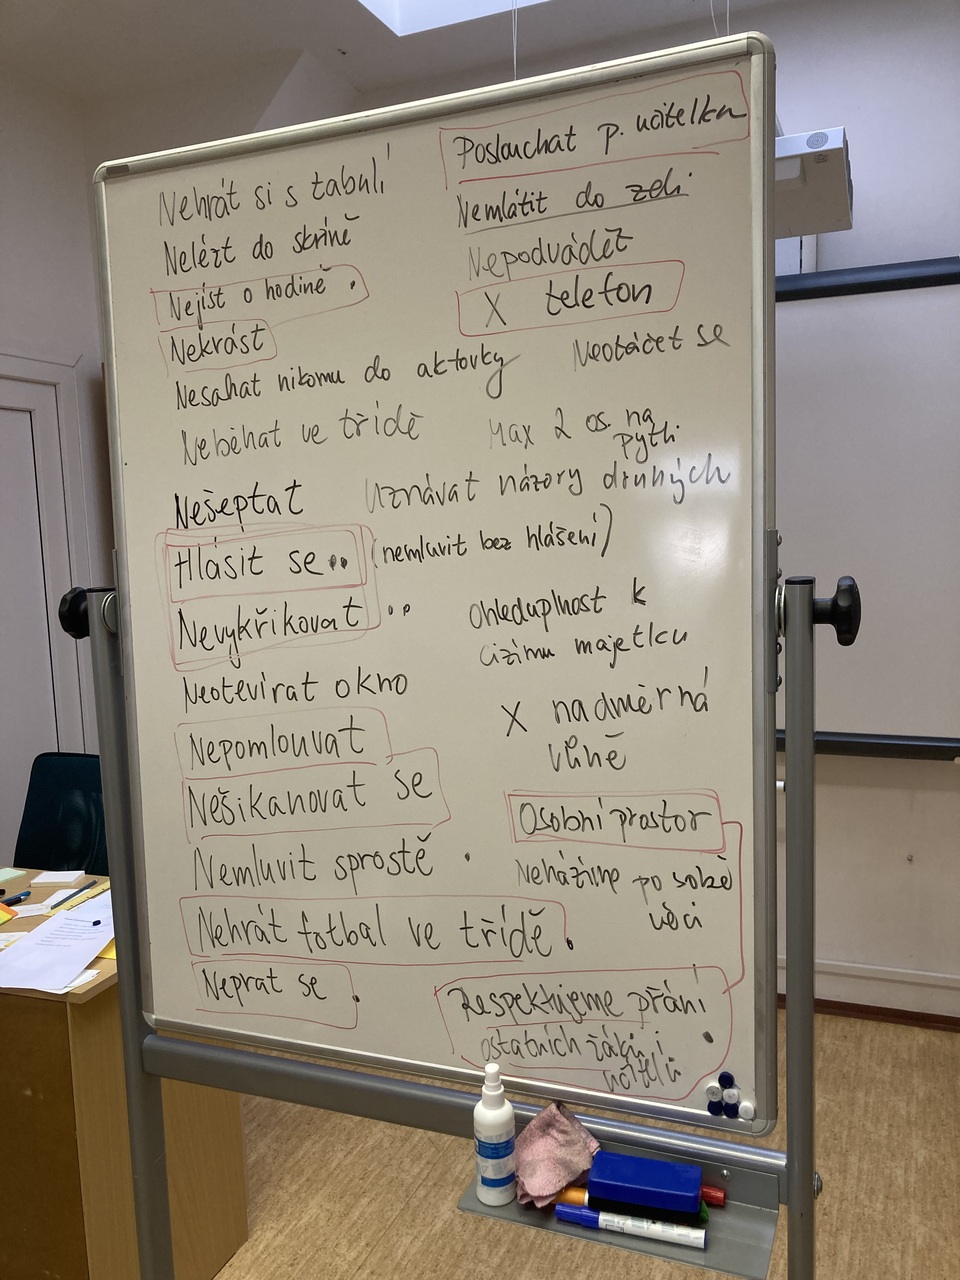 Nehrát si s tabulí
Nelézt do skříně
Nejíst o hodině.
Nekrást
Nesahat nikomu do aktovky
Neběhat ve třídě
Nešeptat
Hlásit se.. (nemluvit bez hlášení)
Nevykřikovat ..
Neotevírat okno
Nepomlouvat
Nešikanovat se
Nemluvit sprostě .
Nehrát fotbal ve třídě.
Neprat se .
Poslouchat p. učitelku
Nemlátit do zdi
Nepodvádět
X telefon
Neotáčet se
Max 2 os. na
pytli
Uznávat názory druhých
Ohleduplnost k
cizímu majetku
X nadměrná
vůně
Osobní prostor
Neházíme po sobě
věci
Respektujeme přání
ostatních žáků i
učitelů